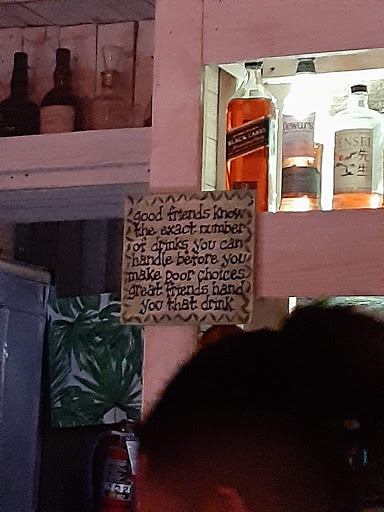 BLACK LABEL
Dewar's
SENSEI
先生
good friends know
the exact number
of drinks you can
handle before you
make poor choices
great friends hand
you that drink